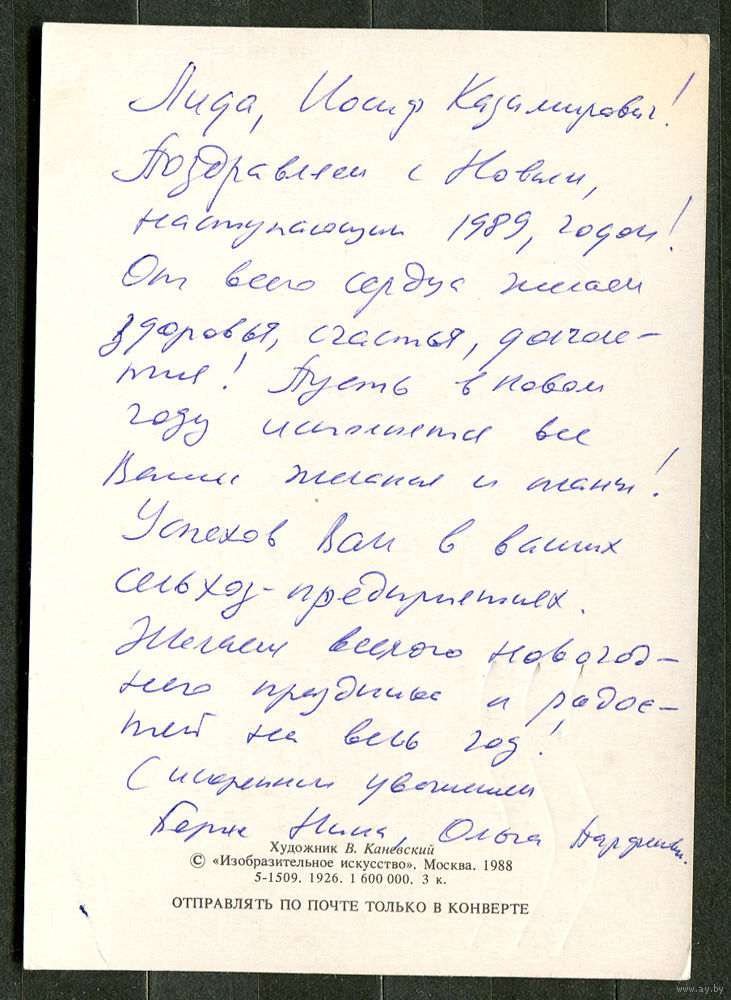 Лида, Иосиф Казимирович!
Поздравляем с Новым,
наступающим 1989, годом!
От всего сердца желаем
здоровья, счастья, долголе-
тия! Пусть в новом
году исполнятся все
Ваши желания и планы!
Успехов Вам в ваших
сельхоз-предприятиях.
Желаем веселого новогод-
него праздника и радос-
тей на весь год!
С искренним уважением
Нина, Ольга
Художник В. Каневский
© «Изобразительное искусство». Москва. 1988
5-1509. 1926. 1 600 000. 3 к.
ОТПРАВЛЯТЬ ПО ПОЧТЕ ТОЛЬКО В КОНВЕРТЕ
www.ay.by